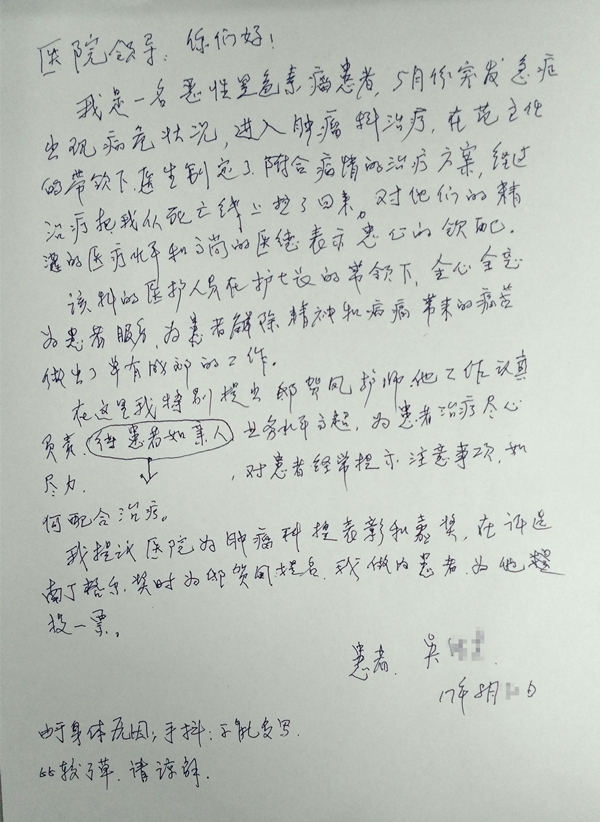 医院领导：你们好！
我是一名恶性黑色素瘤患者，5月份突发急症
出现病危状况，进入肿瘤科治疗，在范主任
的带领下，医生制定了附合病情的治疗方案，经过
治疗把我从死亡线上拉了回来。对他们的精
湛的医疗水平和高尚的医德表示患心的钦配.
该科的医护人员在护士长的带领下，全心全意
为患者服务，为患者解除精神和病痛带来的痛苦
做出了卓有成部的工作。
在这里我特别提出邸贺凤护师他工作认真
负责，待患者如亲人 业务水平高超，为患者治疗尽心
尽力. ，对患者经常提示注意事项，如
何配合治疗。
我提议医院为肿瘤科提表彰和嘉奖，在评选
南丁格尔奖时为邸贺凤提名，我做为患者，为他
投一票。
患者. 吴
17年8月 日
由于身体原因，手抖；不能复写
比较了草. 请谅解.